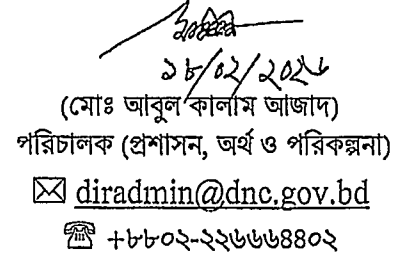 ১৮/০২/২০২৬
(মোঃ আবুল কালাম আজাদ)
পরিচালক (প্রশাসন, অর্থ ও পরিকল্পনা)
✉ diradmin@dnc.gov.bd
☏ +৮৮০২-২২৬৬৬৪৪০২